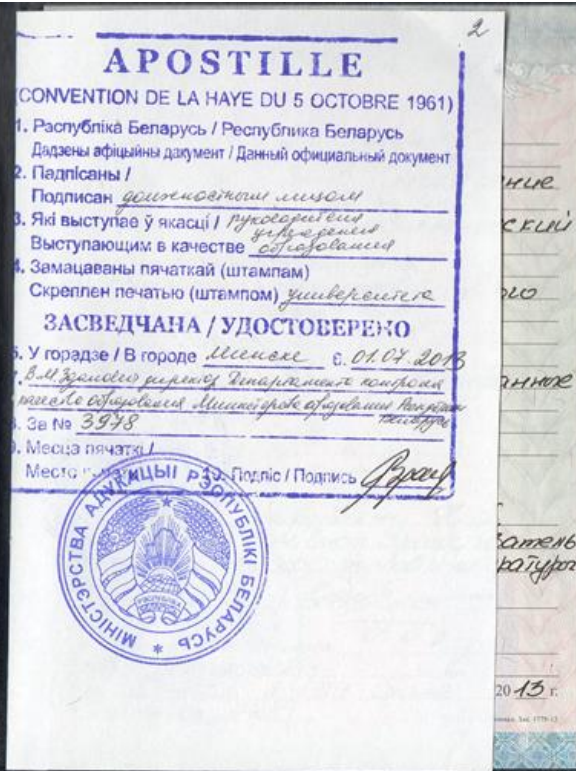 2
APOSTILLE
(CONVENTION DE LA HAYE DU 5 OCTOBRE 1961)
1. Рэспубліка Беларусь / Республика Беларусь
Дадзены афіцыйны дакумент / Данный официальный документ
2. Падпісаны /
Подписан должностным лицом
3. Які выступае ў якасці / руководителя
учреждения
Выступающим в качестве образования
4. Замацаваны пячаткай (штампам)
Скреплен печатью (штампом) университета
ЗАСВЕДЧАНА / УДОСТОВЕРЕНО
5. У горадзе / В городе Минске 6. 01.07.2013
7. В.М. директор Департамента контроля
качества образования Министерства образования Республики
Беларусь
8. За № 3978
9. Месца пячаткі /
Место 10. Подпіс / Подпись
МІНІСТЭРСТВА АДУКАЦЫІ РЭСПУБЛІКІ БЕЛАРУСЬ *
ние
ский
ого
анное
ватель
ратуры
2013 г.
Зак. 1779-12